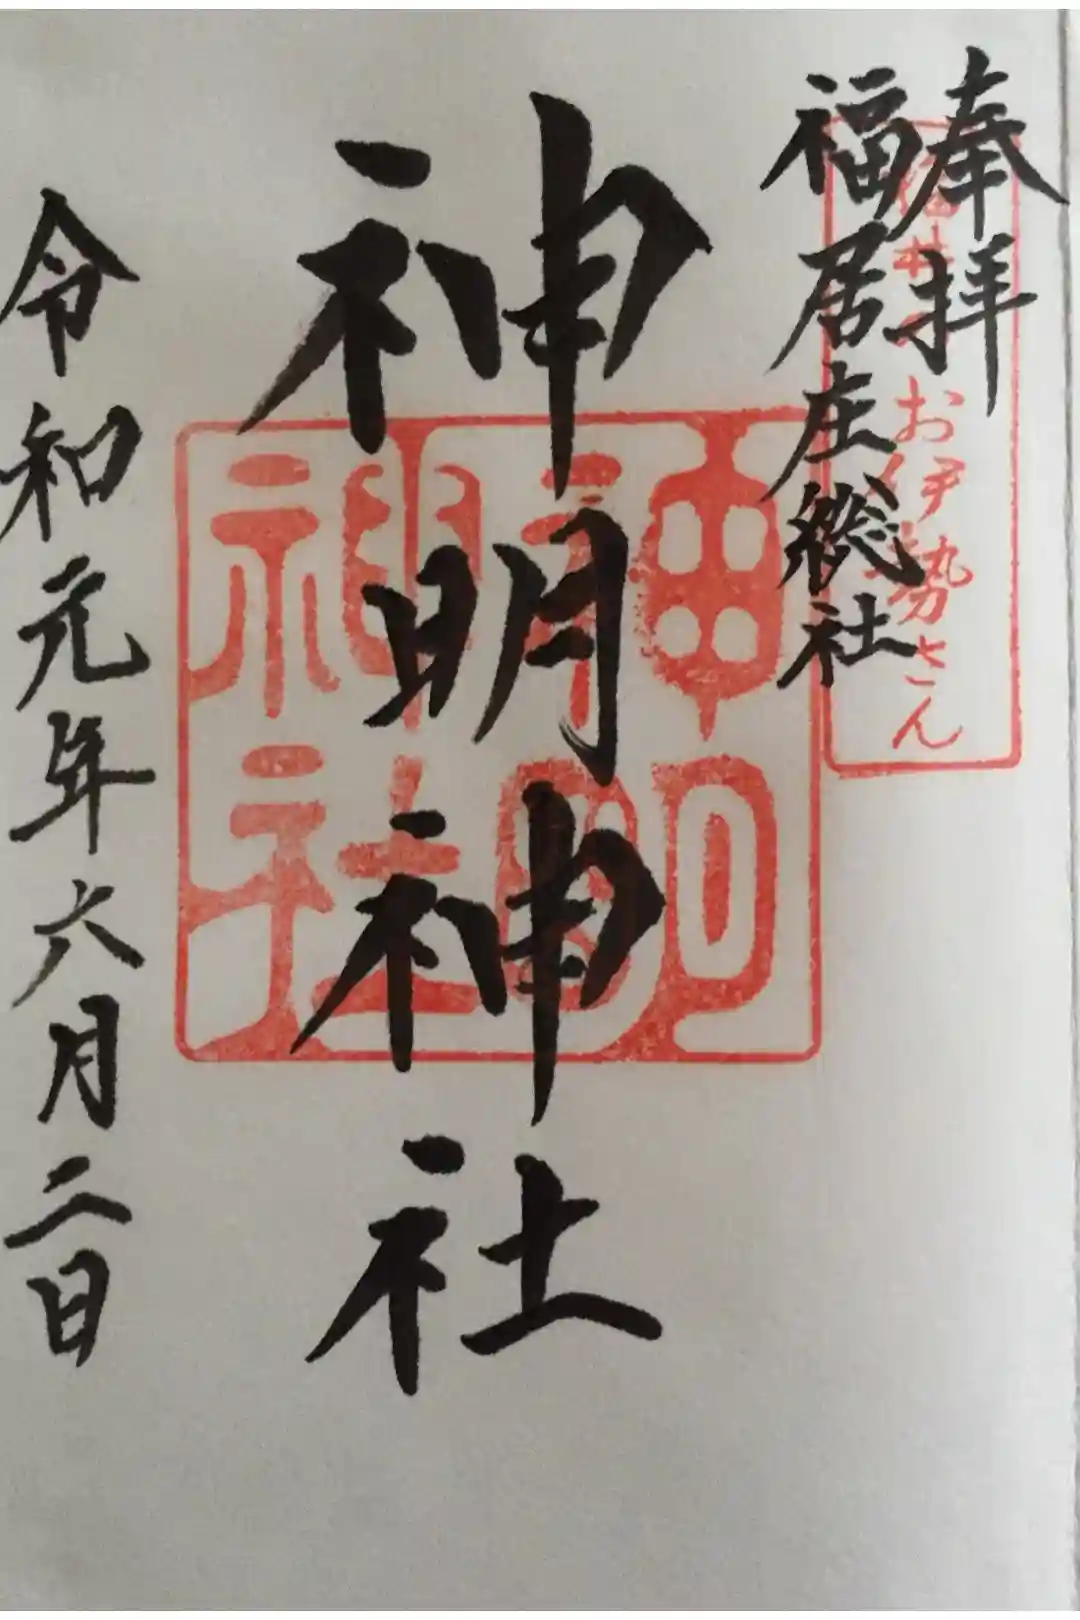 奉拝
福居庄総社
福井のお伊勢さん
神明神社
神明
神社
令和元年六月二日